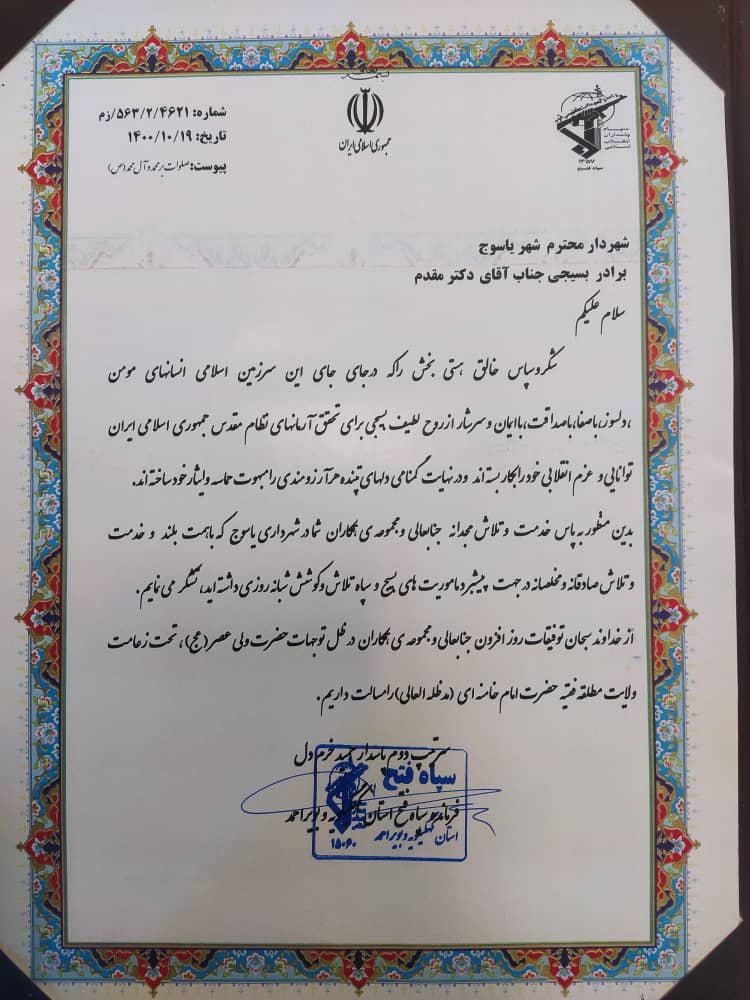 بسمه تعالی
جمهوری اسلامی ایران
سپاه
پاسداران
انقلاب
اسلامی
۱۳۵۷
سپاه فتح
شماره: ۵۶۳/۲/۴۶۲۱/زم
تاریخ: ۱۴۰۰/۱۰/۱۹
پیوست: صلوات بر محمد و آل محمد (ص)
شهردار محترم شهر یاسوج
برادر بسیجی جناب آقای دکتر مقدم
سلام علیکم
شکر و سپاس خالق هستی بخش را که در جای جای این سرزمین اسلامی انسانهای مومن
،دلسوز، باصفا، باصداقت، باایمان و سرشار از روح لطیف بسیجی برای تحقق آرمانهای نظام مقدس جمهوری اسلامی ایران
توانایی و عزم انقلابی خود را بکار بسته اند و در نهایت گمنامی دلهای تپنده هر آرزومندی را مبهوت حماسه و ایثار خود ساخته اند.
بدین منظور به پاس خدمت و تلاش مجدانه جنابعالی و مجموعه ی همکاران شما در شهرداری یاسوج که با همت بلند و خدمت
و تلاش صادقانه و مخلصانه در جهت پیشبرد ماموریت های بسیج و سپاه تلاش و کوشش شبانه روزی داشته اید، تشکر می نمایم.
از خداوند سبحان توفیقات روز افزون جنابعالی و مجموعه ی همکاران در ظل توجهات حضرت ولی عصر (عج)، تحت زعامت
ولایت مطلقه فقیه حضرت امام خامنه ای (مدظله العالی) را مسالت داریم.
سرتیپ دوم پاسدار حمید خرم دل
فرمانده سپاه فتح استان کهگیلویه و بویراحمد
سپاه فتح
استان کهگیلویه و بویراحمد
۱۵۰۶۰